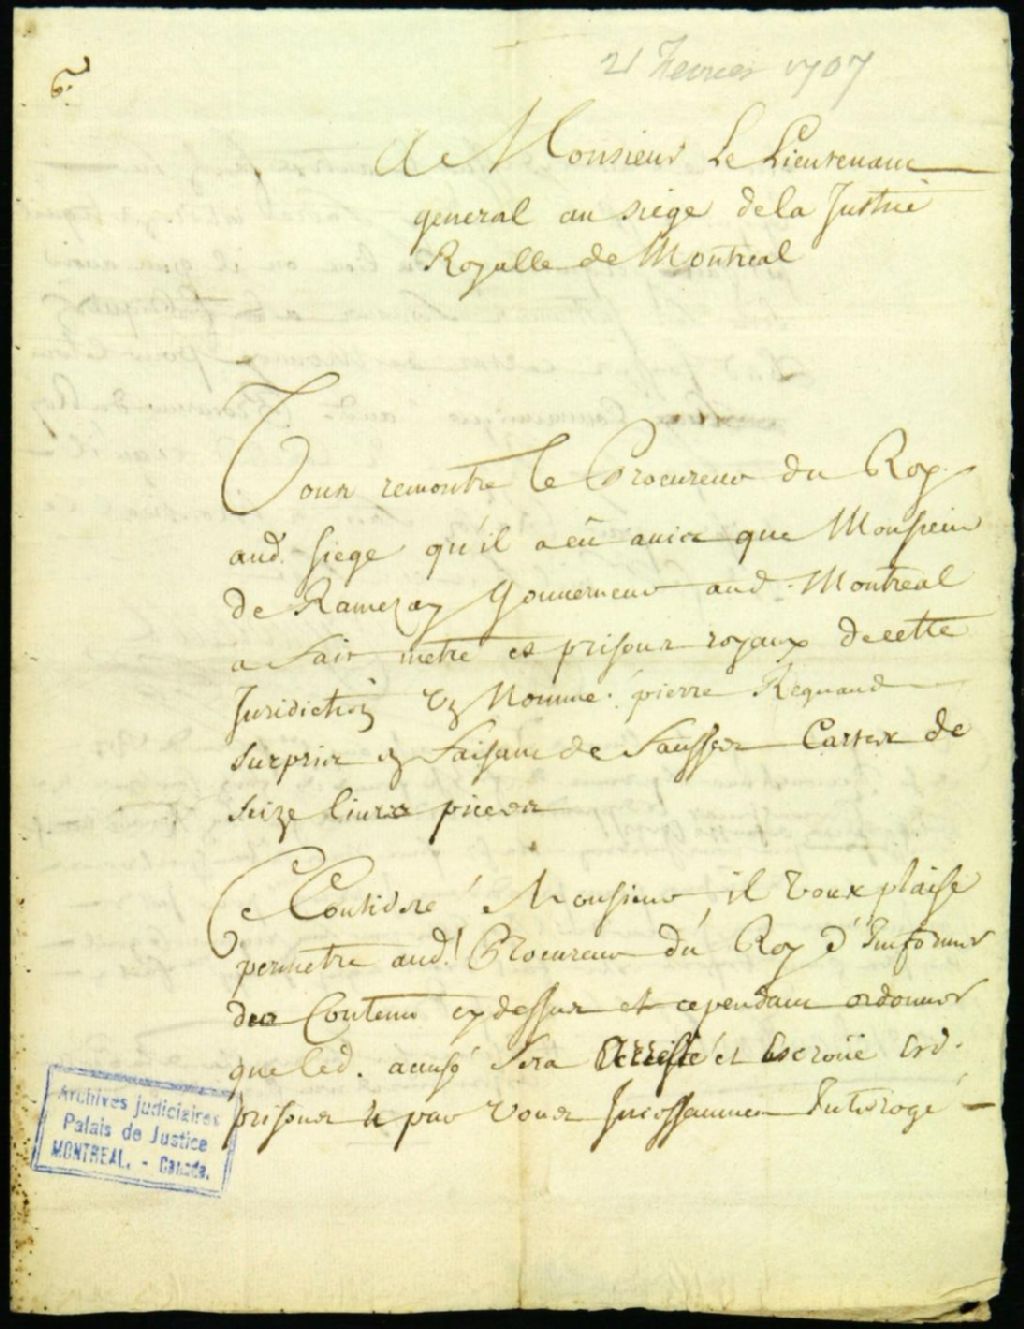 6e
21 Fevrier 1707
A Monsieur Le Lieutenant
general au siege dela Justice
Royalle de Montreal
Vous remontre le Procureur du Roy
aud. siege qu'il a eu avis que Monsieur
de Ramezay Gouverneur aud. Montreal
a fait metre es prisons royaux de cette
Juridiction un Nommé pierre Regnaud
surpris en faisant de fausses Cartes de
seize livres pieces
Ce Considéré Monsieur, il vous plaise
permetre aud. Procureur du Roy d'Informer
du Contenu cy dessus et cependant ordonner
que led. accusé sera Arresté et Escroüé esd.
prisons et par vous Incessamment Interogé
Archives judiciaires
Palais de Justice
MONTREAL. - Canada.